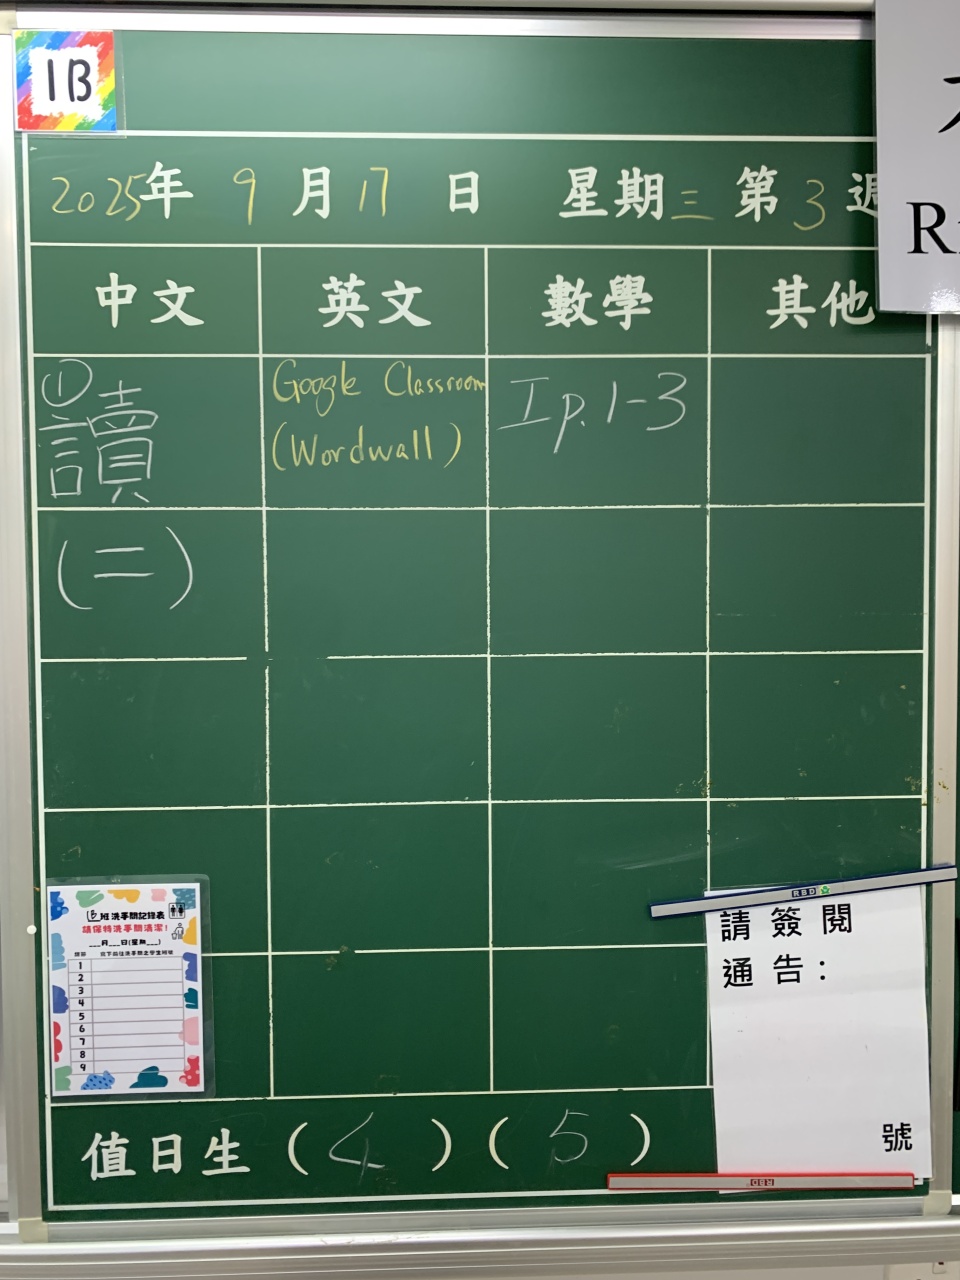 1B
2025年 9月17日 星期三 第3週
中文 英文 數學 其他
① 讀
(二)
Google Classroom
(Wordwall)
I p.1-3
1B班洗手間記錄表
請保持洗手間清潔!
___月___日(星期___)
1
2
3
4
5
6
7
8
9
RBD
請簽閱
通告:
號
值日生 (4)(5)
RBD